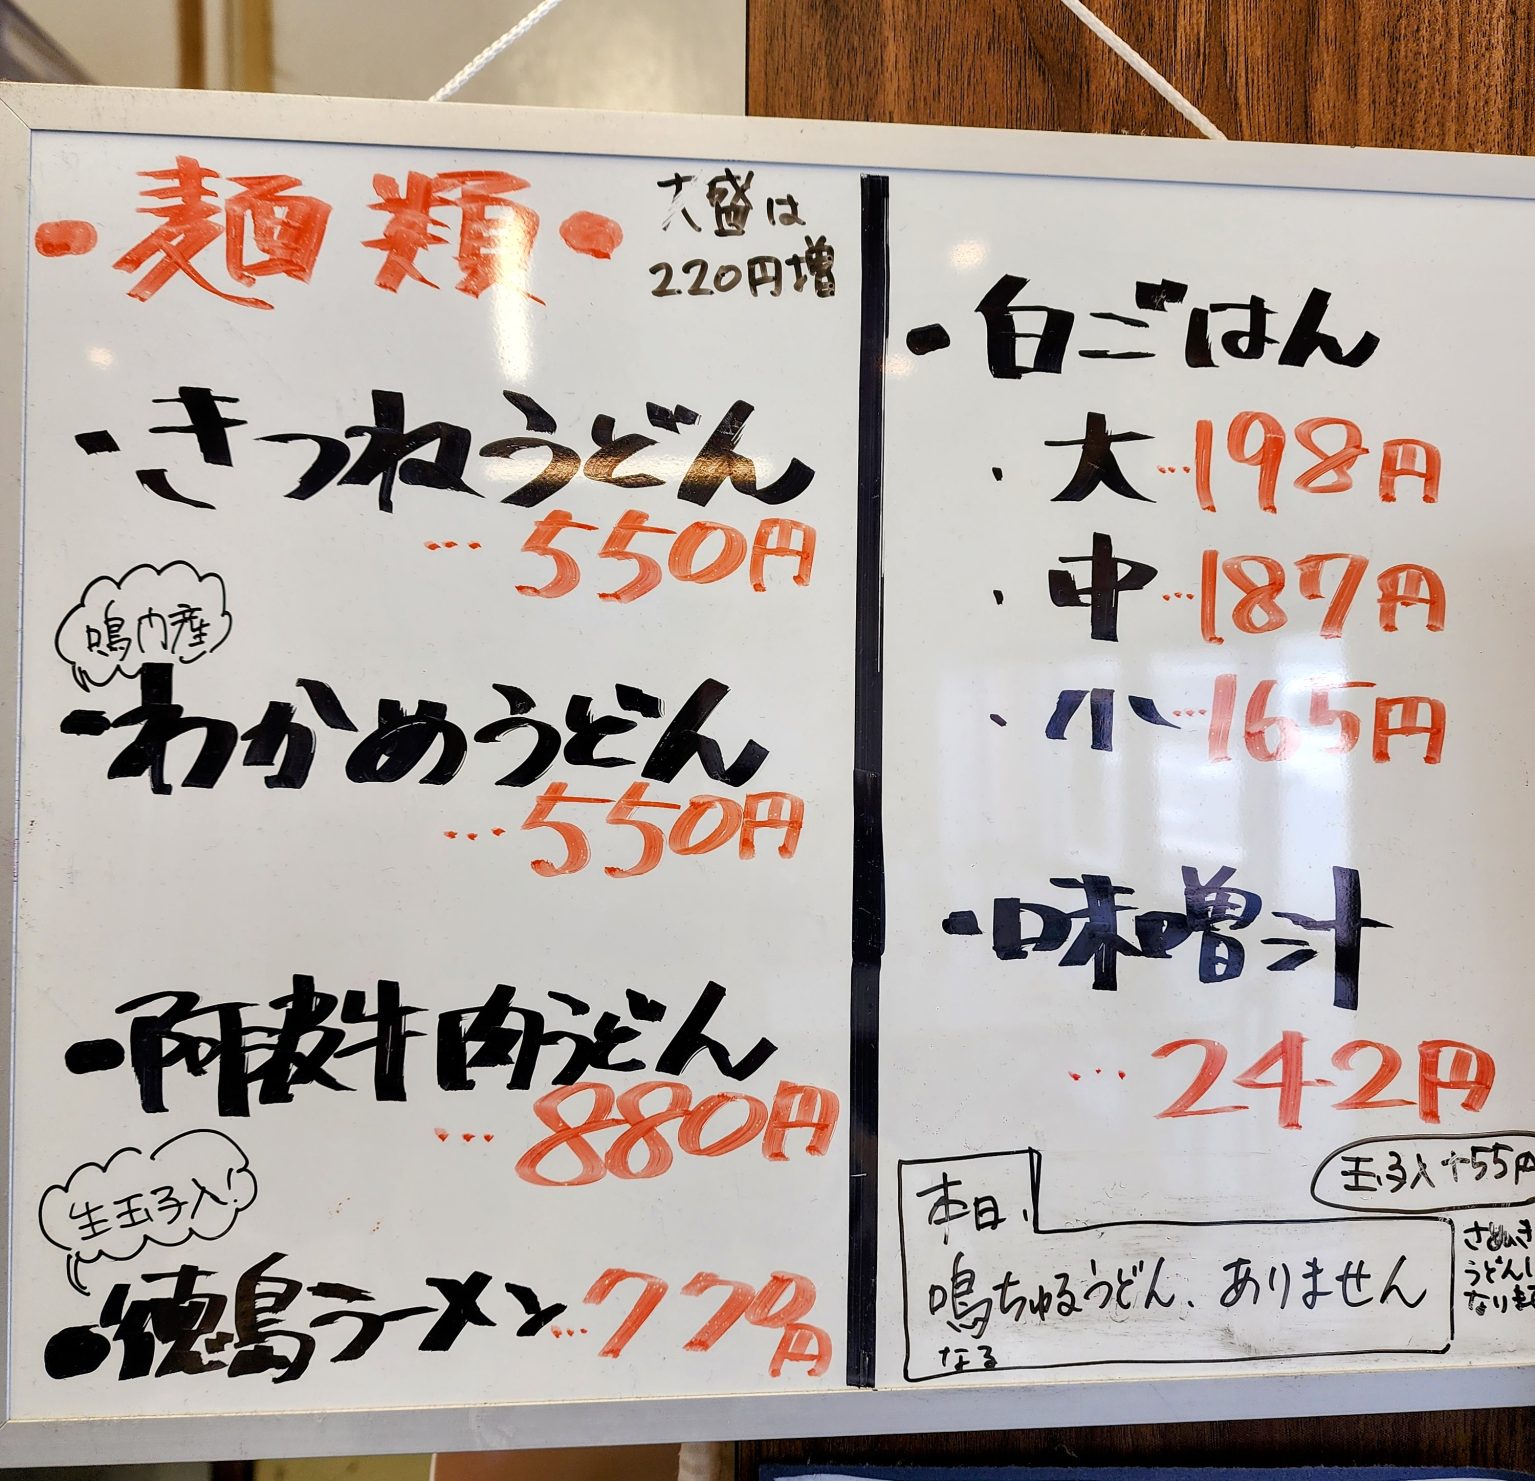 ・麺類・
大盛は
220円増
・きつねうどん
…550円
鳴門産
・わかめうどん
…550円
・阿波牛肉うどん
…880円
生玉子入!
・徳島ラーメン…770円
・白ごはん
・大…198円
・中…187円
・小…165円
・味噌汁
…242円
玉子入+55円
本日、
鳴ちゅるうどん、ありません
なる
さぬき
うどんに
なります